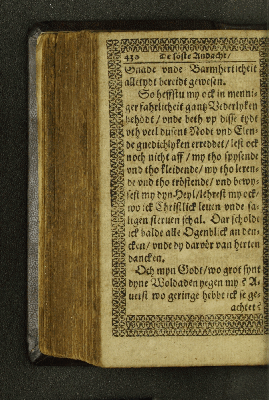 330 De soste Andacht/
Gnade vnde Barmherticheit
alletydt beredt gewesen.
So heffstu my ock in mennie
ger fahrlicheit gantz Vederlyken
behödt / vnde beth vp disse tydt
vth veel dusent Nodt vnd Elen-
de gnedichlyken erreddet / lest ock
noch nicht aff / my tho spysende
vnd tho kleidende / my tho leren-
de vnd tho tröstende / vnd bewy-
sest my dyn Heyl / lehrest my ock /
wo ick Christlick leuen vnde sa-
ligen steruen schal. Dar scholde
ick balde alle Ogenblick an den-
cken / vnde dy darvör van herten
dancken.
Och myn Godt / wo grot synt
dyne Woldaden yegen my? A-
uerst wo geringe hebbe ick se ge-
achtet?